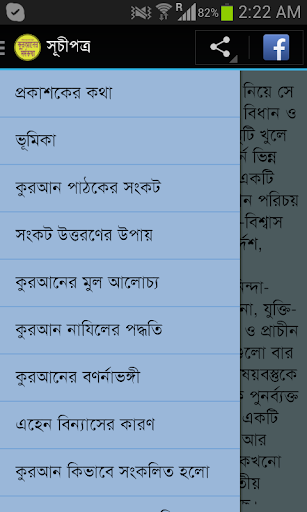 82% 2:22 AM
কুরআনের
সূচীপত্র
প্রকাশকের কথা
ভূমিকা
কুরআন পাঠকের সংকট
সংকট উত্তরণের উপায়
কুরআনের মুল আলোচ্য
কুরআন নাযিলের পদ্ধতি
কুরআনের বর্ণনাভঙ্গী
এহেন বিন্যাসের কারণ
কুরআন কিভাবে সংকলিত হলো
নিয়ে সে
বিধান ও
টি খুলে
র্ন ভিন্ন
একটি
ন পরিচয়
-বিশ্বাস
র্দেশ,
ন্দা-
না, যুক্তি-
ও প্রাচীন
গুলো বার
ষয়বস্তুকে
পুনর্ব্যক্ত
একটি
আর
কখনো
তীয়